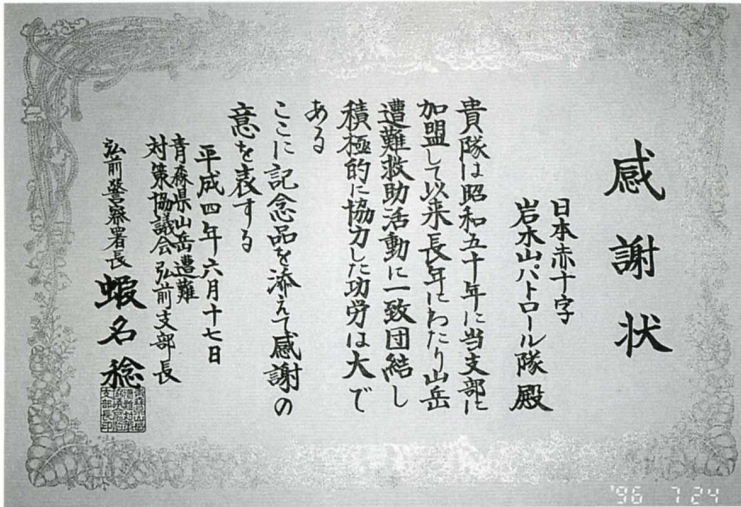 感謝状
日本赤十字
岩木山パトロール隊 殿
貴隊は昭和五十年に当支部に
加盟して以来長年にわたり山岳
遭難救助活動に一致団結し
積極的に協力した功労は大で
ある
ここに記念品を添えて感謝の
意を表する
平成四年六月十七日
青森県山岳遭難
対策協議会弘前支部長
弘前警察署長 蝦名稔
'96 7 24